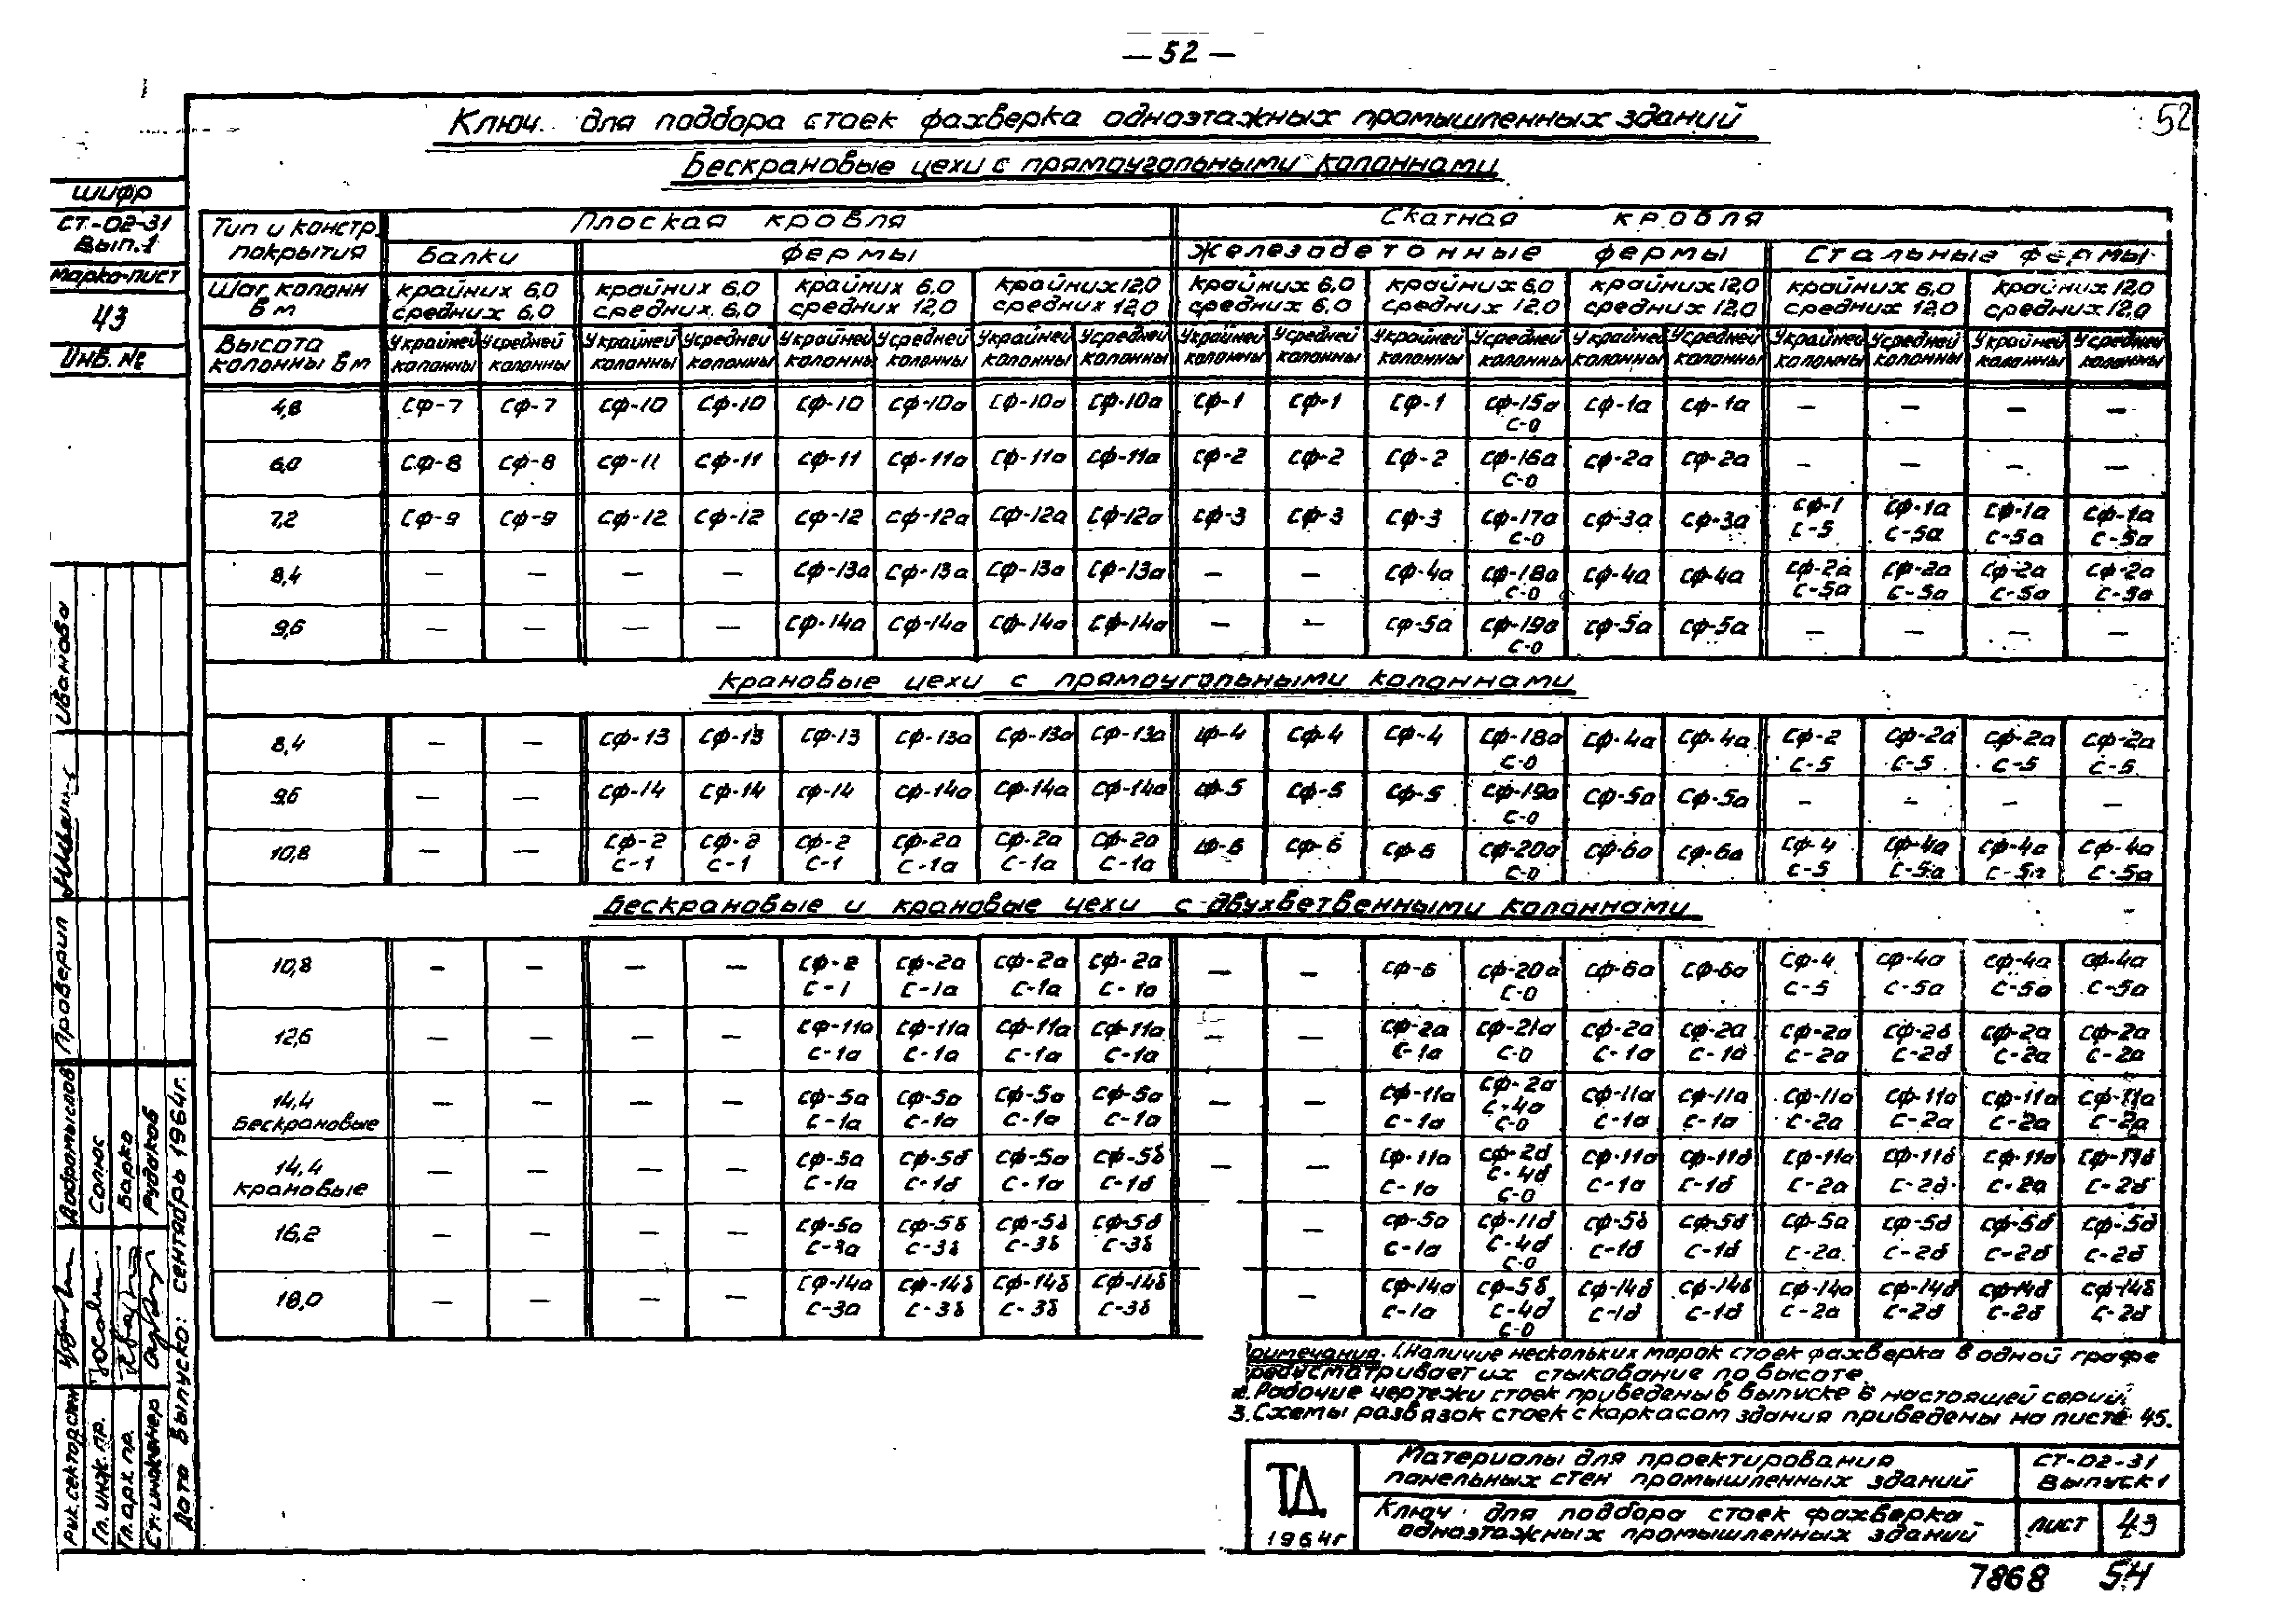 — 52 —
52
Ключ для подбора стоек фахверка одноэтажных промышленных зданий
Бескрановые цехи с прямоугольными колоннами
шифр
СТ-02-31
Вып.1
марка-лист
43
Инв. №
Тип и констр. покрытия | Плоская кровля | Скатная кровля
Балки | фермы | Железобетонные фермы | Стальные фермы
Шаг колонн в м | крайних 6,0 средних 6,0 | крайних 6,0 средних 6,0 | крайних 6,0 средних 12,0 | крайних 12,0 средних 12,0 | крайних 6,0 средних 6,0 | крайних 6,0 средних 12,0 | крайних 12,0 средних 12,0 | крайних 6,0 средних 12,0 | крайних 12,0 средних 12,0
Высота колонны в м | У крайней колонны | У средней колонны | У крайней колонны | У средней колонны | У крайней колонны | У средней колонны | У крайней колонны | У средней колонны | У крайней колонны | У средней колонны | У крайней колонны | У средней колонны | У крайней колонны | У средней колонны | У крайней колонны | У средней колонны | У крайней колонны | У средней колонны
4,8 | СФ-7 | СФ-7 | СФ-10 | СФ-10 | СФ-10 | СФ-10а | СФ-10а | СФ-10а | СФ-1 | СФ-1 | СФ-1 | СФ-15а С-0 | СФ-1а | СФ-1а | — | — | — | —
6,0 | СФ-8 | СФ-8 | СФ-11 | СФ-11 | СФ-11 | СФ-11а | СФ-11а | СФ-11а | СФ-2 | СФ-2 | СФ-2 | СФ-16а С-0 | СФ-2а | СФ-2а | — | — | — | —
7,2 | СФ-9 | СФ-9 | СФ-12 | СФ-12 | СФ-12 | СФ-12а | СФ-12а | СФ-12а | СФ-3 | СФ-3 | СФ-3 | СФ-17а С-0 | СФ-3а | СФ-3а | СФ-1 С-5 | СФ-1а С-5а | СФ-1а С-5а | СФ-1а С-5а
8,4 | — | — | — | — | СФ-13а | СФ-13а | СФ-13а | СФ-13а | — | — | СФ-4а | СФ-18а С-0 | СФ-4а | СФ-4а | СФ-2а С-5а | СФ-2а С-5а | СФ-2а С-5а | СФ-2а С-5а
9,6 | — | — | — | — | СФ-14а | СФ-14а | СФ-14а | СФ-14а | — | — | СФ-5а | СФ-19а С-0 | СФ-5а | СФ-5а | — | — | — | —
Крановые цехи с прямоугольными колоннами
8,4 | — | — | СФ-13 | СФ-13 | СФ-13 | СФ-13а | СФ-13а | СФ-13а | СФ-4 | СФ-4 | СФ-4 | СФ-18а С-0 | СФ-4а | СФ-4а | СФ-2 С-5 | СФ-2а С-5 | СФ-2а С-5 | СФ-2а С-5
9,6 | — | — | СФ-14 | СФ-14 | СФ-14 | СФ-14а | СФ-14а | СФ-14а | СФ-5 | СФ-5 | СФ-5 | СФ-19а С-0 | СФ-5а | СФ-5а | — | — | — | —
10,8 | — | — | СФ-2 С-1 | СФ-2 С-1 | СФ-2 С-1 | СФ-2а С-1а | СФ-2а С-1а | СФ-2а С-1а | СФ-6 | СФ-6 | СФ-6 | СФ-20а С-0 | СФ-6а | СФ-6а | СФ-4 С-5 | СФ-4а С-5а | СФ-4а С-5а | СФ-4а С-5а
Бескрановые и крановые цехи с двухветвенными колоннами
10,8 | — | — | — | — | СФ-2 С-1 | СФ-2а С-1а | СФ-2а С-1а | СФ-2а С-1а | — | — | СФ-6 | СФ-20а С-0 | СФ-6а | СФ-6а | СФ-4 С-5 | СФ-4а С-5а | СФ-4а С-5а | СФ-4а С-5а
12,6 | — | — | — | — | СФ-11а С-1а | СФ-11а С-1а | СФ-11а С-1а | СФ-11а С-1а | — | — | СФ-2а С-1а | СФ-21а С-0 | СФ-2а С-1а | СФ-2а С-1а | СФ-2а С-2а | СФ-2б С-2б | СФ-2а С-2а | СФ-2а С-2а
14,4 Бескрановые | — | — | — | — | СФ-5а С-1а | СФ-5а С-1а | СФ-5а С-1а | СФ-5а С-1а | — | — | СФ-11а С-1а | СФ-2а С-4а С-0 | СФ-11а С-1а | СФ-11а С-1а | СФ-11а С-2а | СФ-11а С-2а | СФ-11а С-2а | СФ-11а С-2а
14,4 крановые | — | — | — | — | СФ-5а С-1а | СФ-5б С-1б | СФ-5а С-1а | СФ-5б С-1б | — | — | СФ-11а С-1а | СФ-2б С-4б С-0 | СФ-11а С-1а | СФ-11б С-1б | СФ-11а С-2а | СФ-11б С-2б | СФ-11а С-2а | СФ-11б С-2б
16,2 | — | — | — | — | СФ-5а С-3а | СФ-5б С-3б | СФ-5б С-3б | СФ-5б С-3б | — | СФ-5а С-1а | СФ-11б С-4б С-0 | СФ-5б С-1б | СФ-5б С-1б | СФ-5а С-2а | СФ-5б С-2б | СФ-5б С-2б | СФ-5б С-2б
18,0 | — | — | — | — | СФ-14а С-3а | СФ-14б С-3б | СФ-14б С-3б | СФ-14б С-3б | — | СФ-14а С-1а | СФ-5б С-4б С-0 | СФ-14б С-1б | СФ-14б С-1б | СФ-14а С-2а | СФ-14б С-2б | СФ-14б С-2б | СФ-14б С-2б
римечания. 1. Наличие нескольких марок стоек фахверка в одной графе
предусматривает их стыкование по высоте.
2. Рабочие чертежи стоек приведены в выпуске 6 настоящей серии.
3. Схемы развязок стоек с каркасом здания приведены на листе 45.
ТД
1964г
Материалы для проектирования
панельных стен промышленных зданий
СТ-02-31
Выпуск 1
Ключ для подбора стоек фахверка
одноэтажных промышленных зданий
лист
43
7868 54
Иванова
Проверил
Добромыслов
Солюс
Барко
Рудаков
Рук. сектора стен
Гл. инж. пр.
Гл. арх. пр.
Ст. инженер
Дата выпуска: сентябрь 1964г.